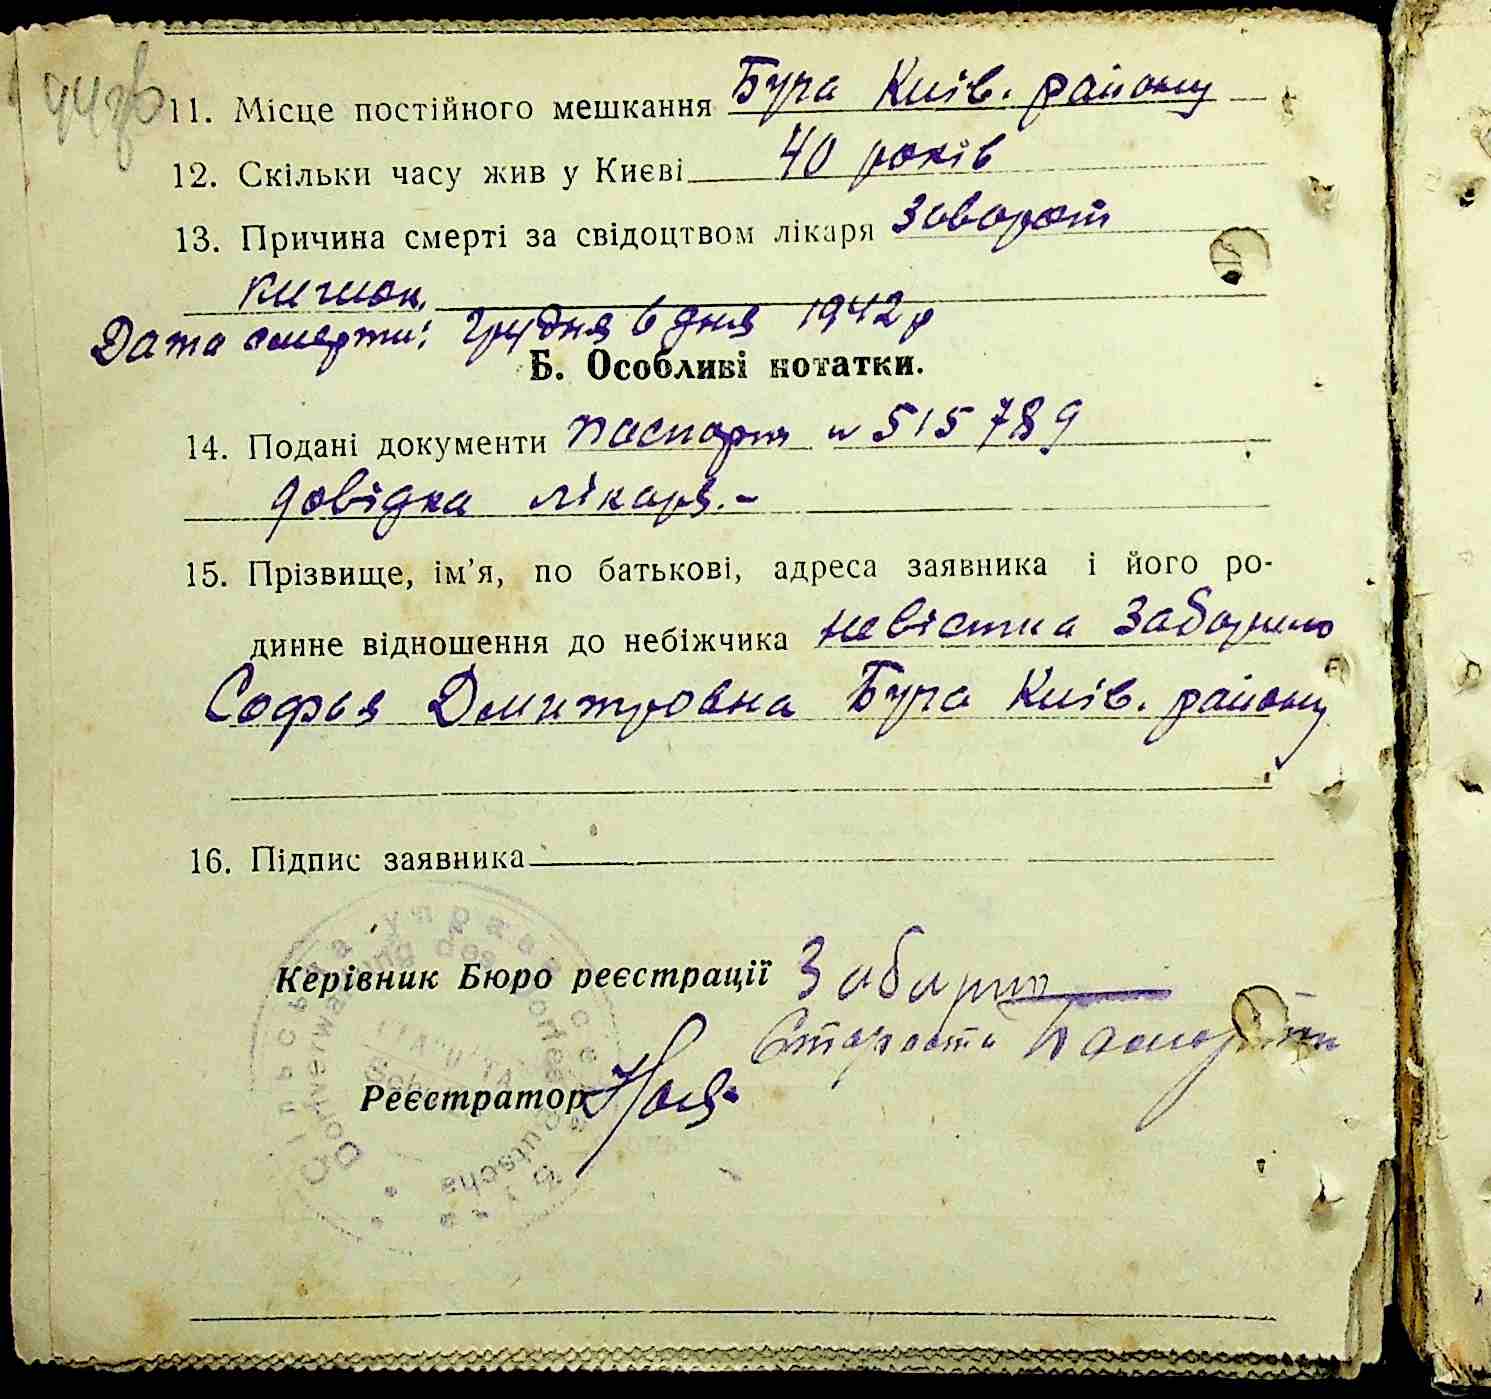 11. Місце постійного мешкання Буча Київ. району
12. Скільки часу жив у Києві 40 років
13. Причина смерті за свідоцтвом лікаря заворот
кишок
Дата смерти: грудня 6 дня 1942 р
Б. Особливі нотатки.
14. Подані документи паспорт № 515789
довідка лікаря.-
15. Прізвище, ім'я, по батькові, адреса заявника і його ро-
динне відношення до небіжчика невістка
Софья Дмитровна Буча Київ. району
16. Підпис заявника
Керівник Бюро реєстрації
Староста
Реєстратор